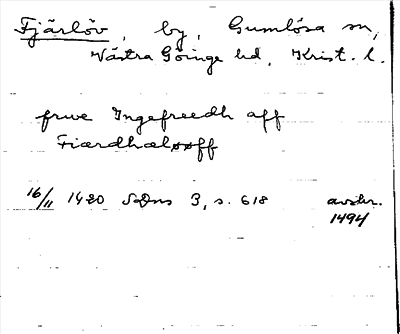 Fjärlöv, by, Gumlösa sn,
Västra Göinge hd, Krist. l.
frwe Ingefreedh aff
Fiærdhæløøff
16/11 1420 SDns 3, s. 618 avskr.
1494